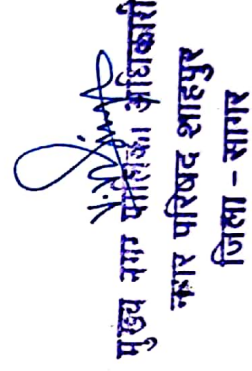 मुख्य नगर पालिका अधिकारी
नगर परिषद शाहपुर
जिला - सागर